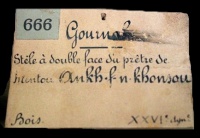 666
Gournah
Stèle à double face du prêtre de
Mentou Ankh-f-n-khonsou
Bois.
XXVIᵉ dynⁱᵉ